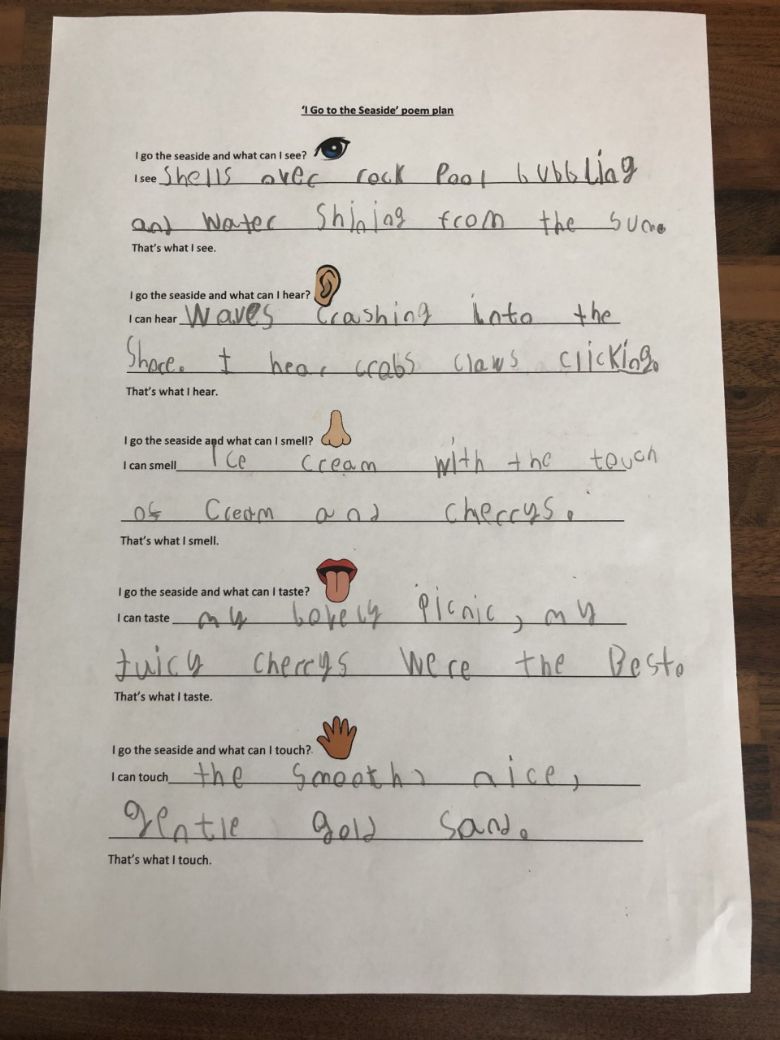 'I Go to the Seaside' poem plan
I go the seaside and what can I see?
I see Shells over rock Pool bubbling
and Water Shining from the sun.
That's what I see.
I go the seaside and what can I hear?
I can hear Waves Crashing into the
Shore. I hear crabs claws clicking.
That's what I hear.
I go the seaside and what can I smell?
I can smell Ice Cream with the touch
of Cream and cherrys.
That's what I smell.
I go the seaside and what can I taste?
I can taste my lovely picnic, my
juicy cherrys Were the Best.
That's what I taste.
I go the seaside and what can I touch?
I can touch the smooth, nice,
gentle gold sand.
That's what I touch.